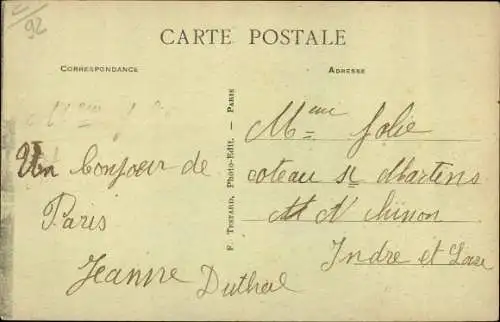 92
CARTE POSTALE
CORRESPONDANCE
ADRESSE
F. TESTARD, Photo-Edit. — PARIS
Un bonjour de
Paris
Jeanne Duthil
Mme Jolie
coteau St Martins
Chinon
Indre et Loire